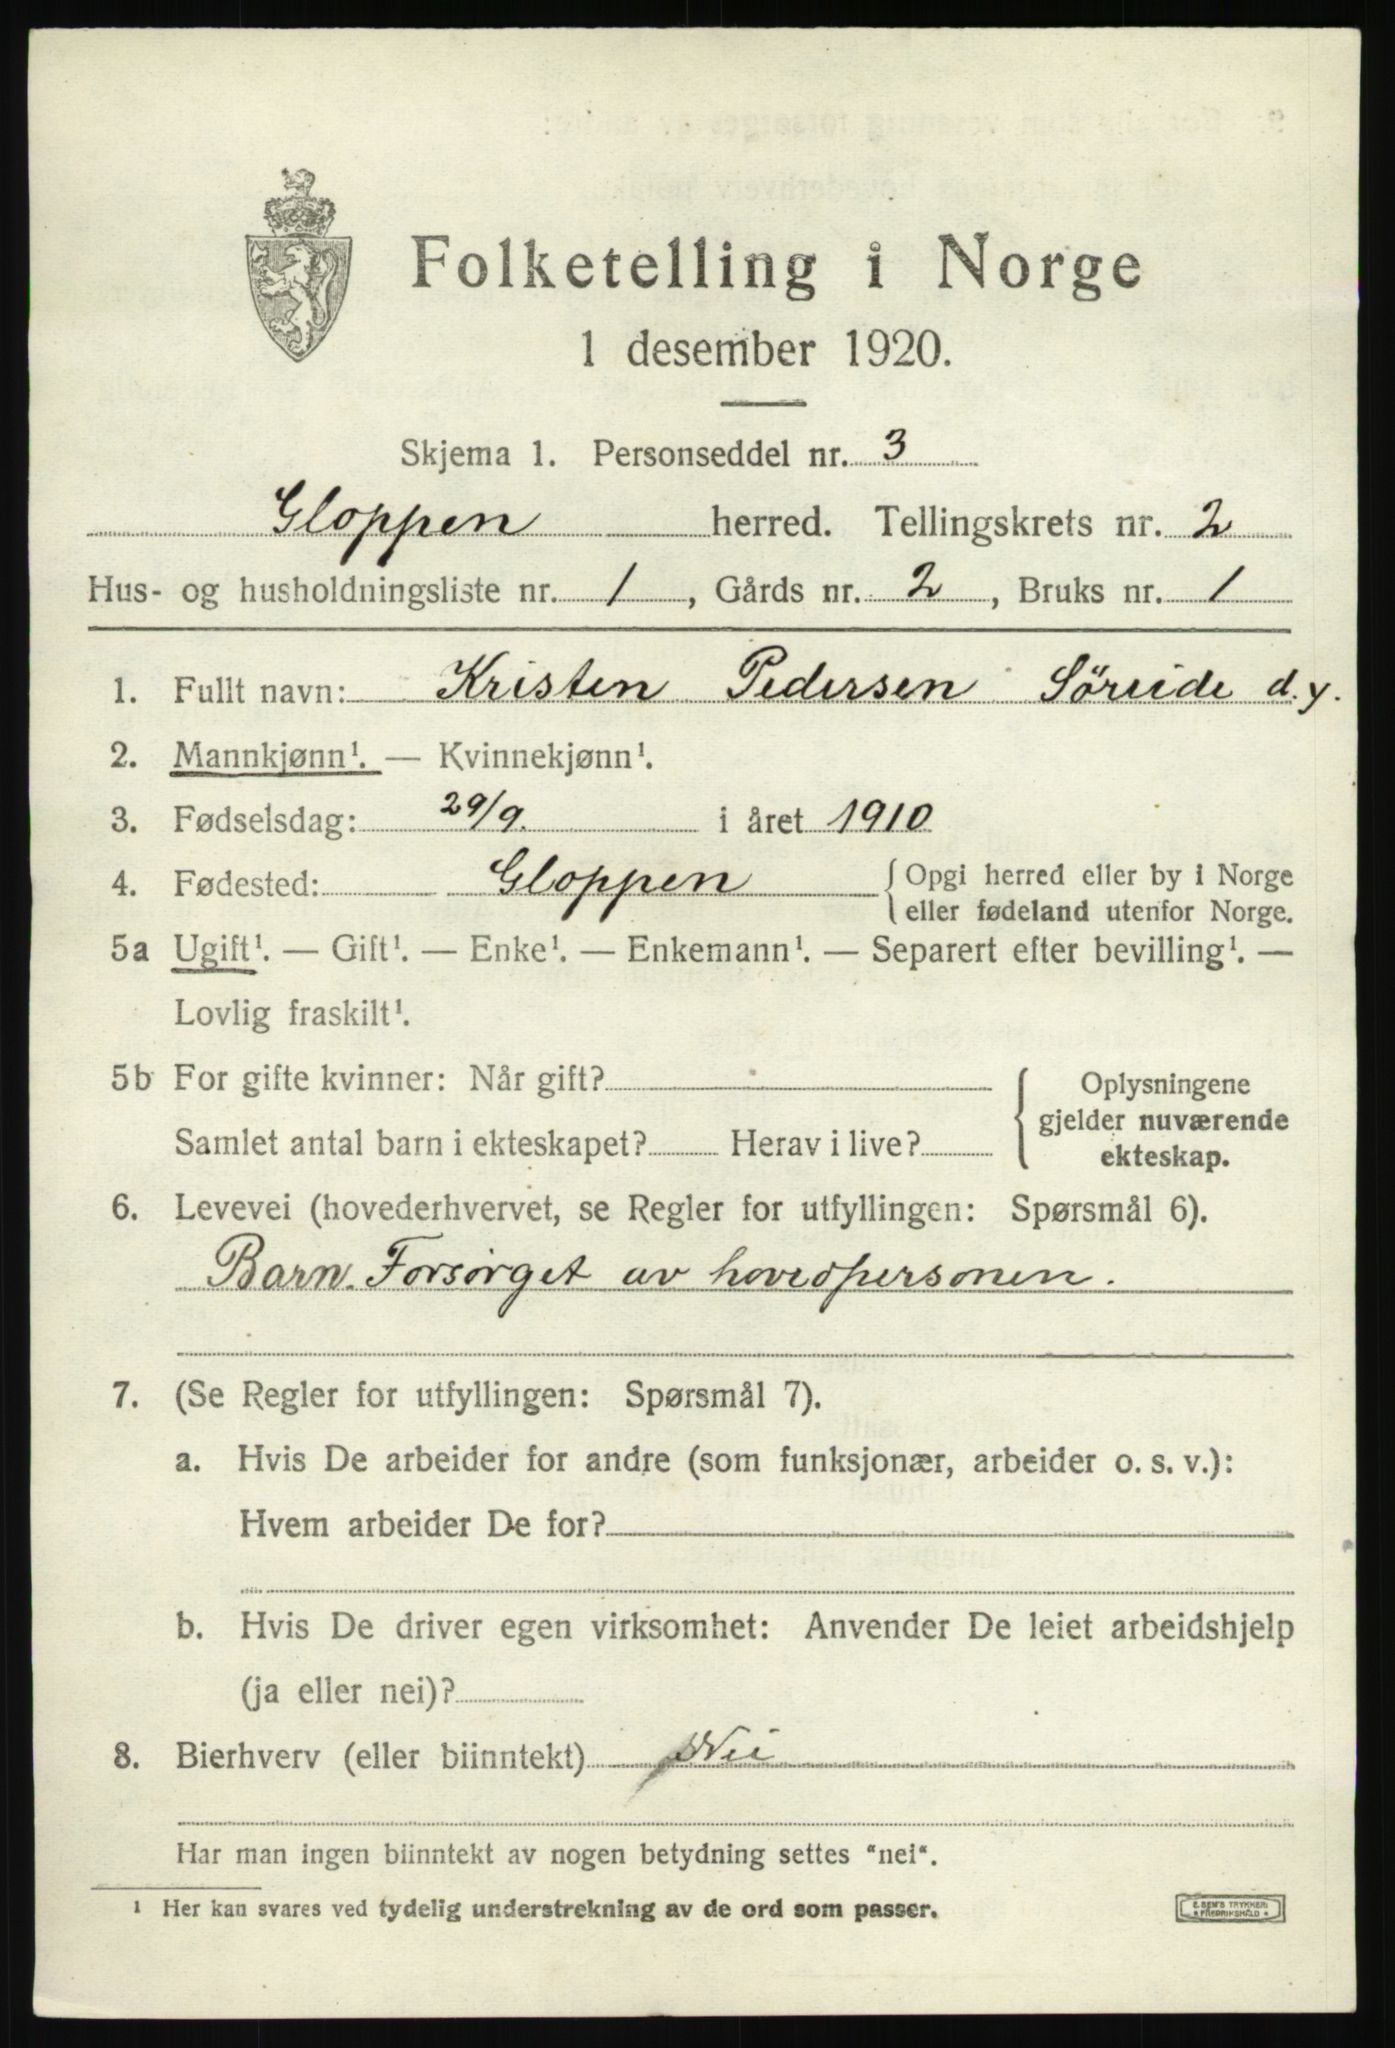 Folketelling i Norge
1 desember 1920.
Skjema 1. Personseddel nr. 3
Gloppen herred. Tellingskrets nr. 2
Hus- og husholdningsliste nr. 1, Gårds nr. 2, Bruks nr. 1
1. Fullt navn: Kristen Pedersen Söreide d.y.
2. Mannkjønn¹. — Kvinnekjønn¹.
3. Fødselsdag: 29/9. i året 1910
4. Fødested: Gloppen { Opgi herred eller by i Norge
eller fødeland utenfor Norge.
5a Ugift¹. — Gift¹. — Enke¹. — Enkemann¹. — Separert efter bevilling¹. —
Lovlig fraskilt¹.
5b For gifte kvinner: Når gift? { Oplysningene
gjelder nuværende
Samlet antal barn i ekteskapet? Herav i live?
ekteskap.
6. Levevei (hovederhvervet, se Regler for utfyllingen: Spørsmål 6).
Barn. Forsørget av hovedpersonen.
7. (Se Regler for utfyllingen: Spørsmål 7).
a. Hvis De arbeider for andre (som funksjonær, arbeider o. s. v.):
Hvem arbeider De for?
b. Hvis De driver egen virksomhet: Anvender De leiet arbeidshjelp
(ja eller nei)?
8. Bierhverv (eller biinntekt) Nei
Har man ingen biinntekt av nogen betydning settes "nei".
¹ Her kan svares ved tydelig understrekning av de ord som passer.
E. SEM'S TRYKKERI
* FREDRIKSHALD *